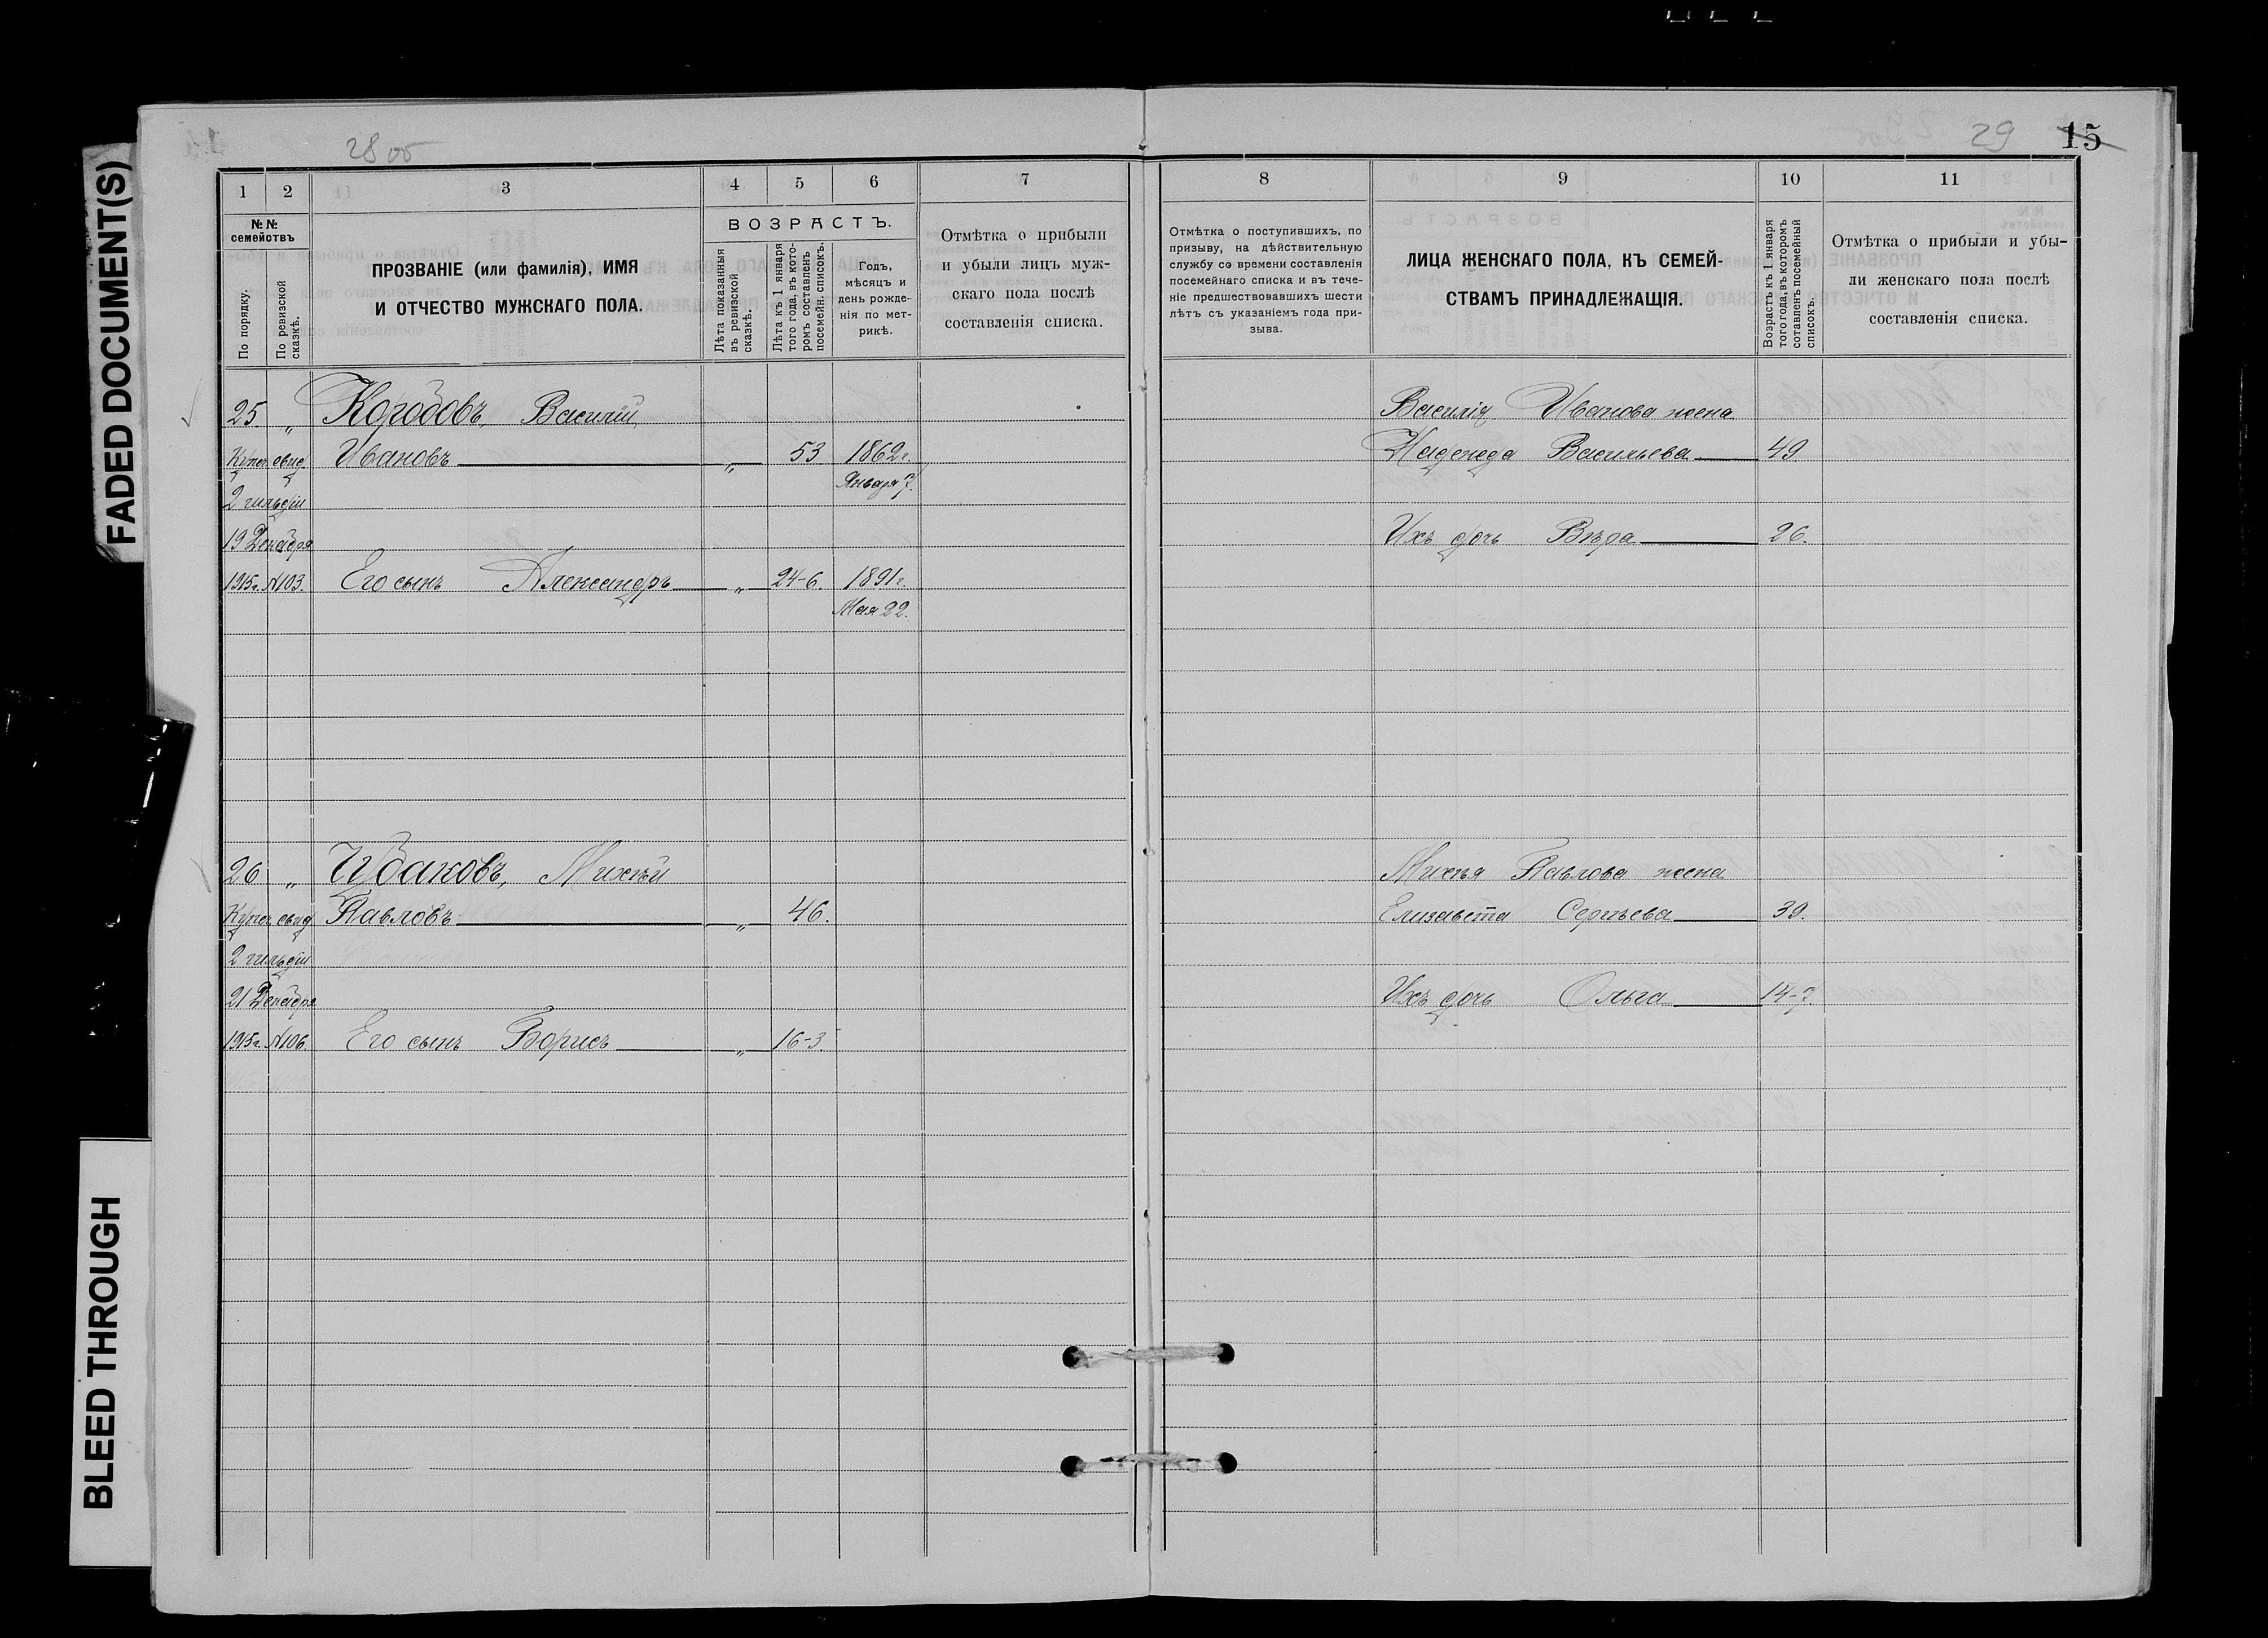 FADED DOCUMENT(S)
BLEED THROUGH
28 об
29 15
1 2 3 4 5 6 7
№№ семействъ
По порядку.
По ревизской сказкѣ.
ПРОЗВАНІЕ (или фамилія), ИМЯ
И ОТЧЕСТВО МУЖСКАГО ПОЛА.
ВОЗРАСТЪ.
Лѣта показанныя
въ ревизской
сказкѣ.
Лѣта къ 1 января
того года, въ кото-
ромъ составленъ
посемейн. списокъ.
Годъ,
мѣсяцъ и
день рожде-
нія по мет-
рикѣ.
Отмѣтка о прибыли
и убыли лицъ муж-
скаго пола послѣ
составленія списка.
25 „ Коробовъ, Василій
Купеч. свид. Ивановъ „ 53 1862 г.
Января 7.
2 гильдіи
19 Декабря
1915 г. №103. Его сынъ Александръ „ 24-6. 1891 г.
Мая 22.
26 „ Чубаковъ, Михѣй
Купеч. свид. Павловъ „ 46.
2 гильдіи
21 Декабря
1915 г. №106. Его сынъ Борисъ „ 16-3.
8 9 10 11
Отмѣтка о поступившихъ, по
призыву, на дѣйствительную
службу со времени составленія
посемейнаго списка и въ тече-
ніе предшествовавшихъ шести
лѣтъ съ указаніемъ года при-
зыва.
ЛИЦА ЖЕНСКАГО ПОЛА, КЪ СЕМЕЙ-
СТВАМЪ ПРИНАДЛЕЖАЩІЯ.
Возрастъ къ 1 января
того года, въ которомъ
составленъ посемейный
списокъ.
Отмѣтка о прибыли и убы-
ли женскаго пола послѣ
составленія списка.
Василія Иванова жена
Надежда Васильева 49
Ихъ дочь Вѣра 26.
Михѣя Павлова жена
Елизавета Сергѣева 39.
Ихъ дочь Ольга 14-7.